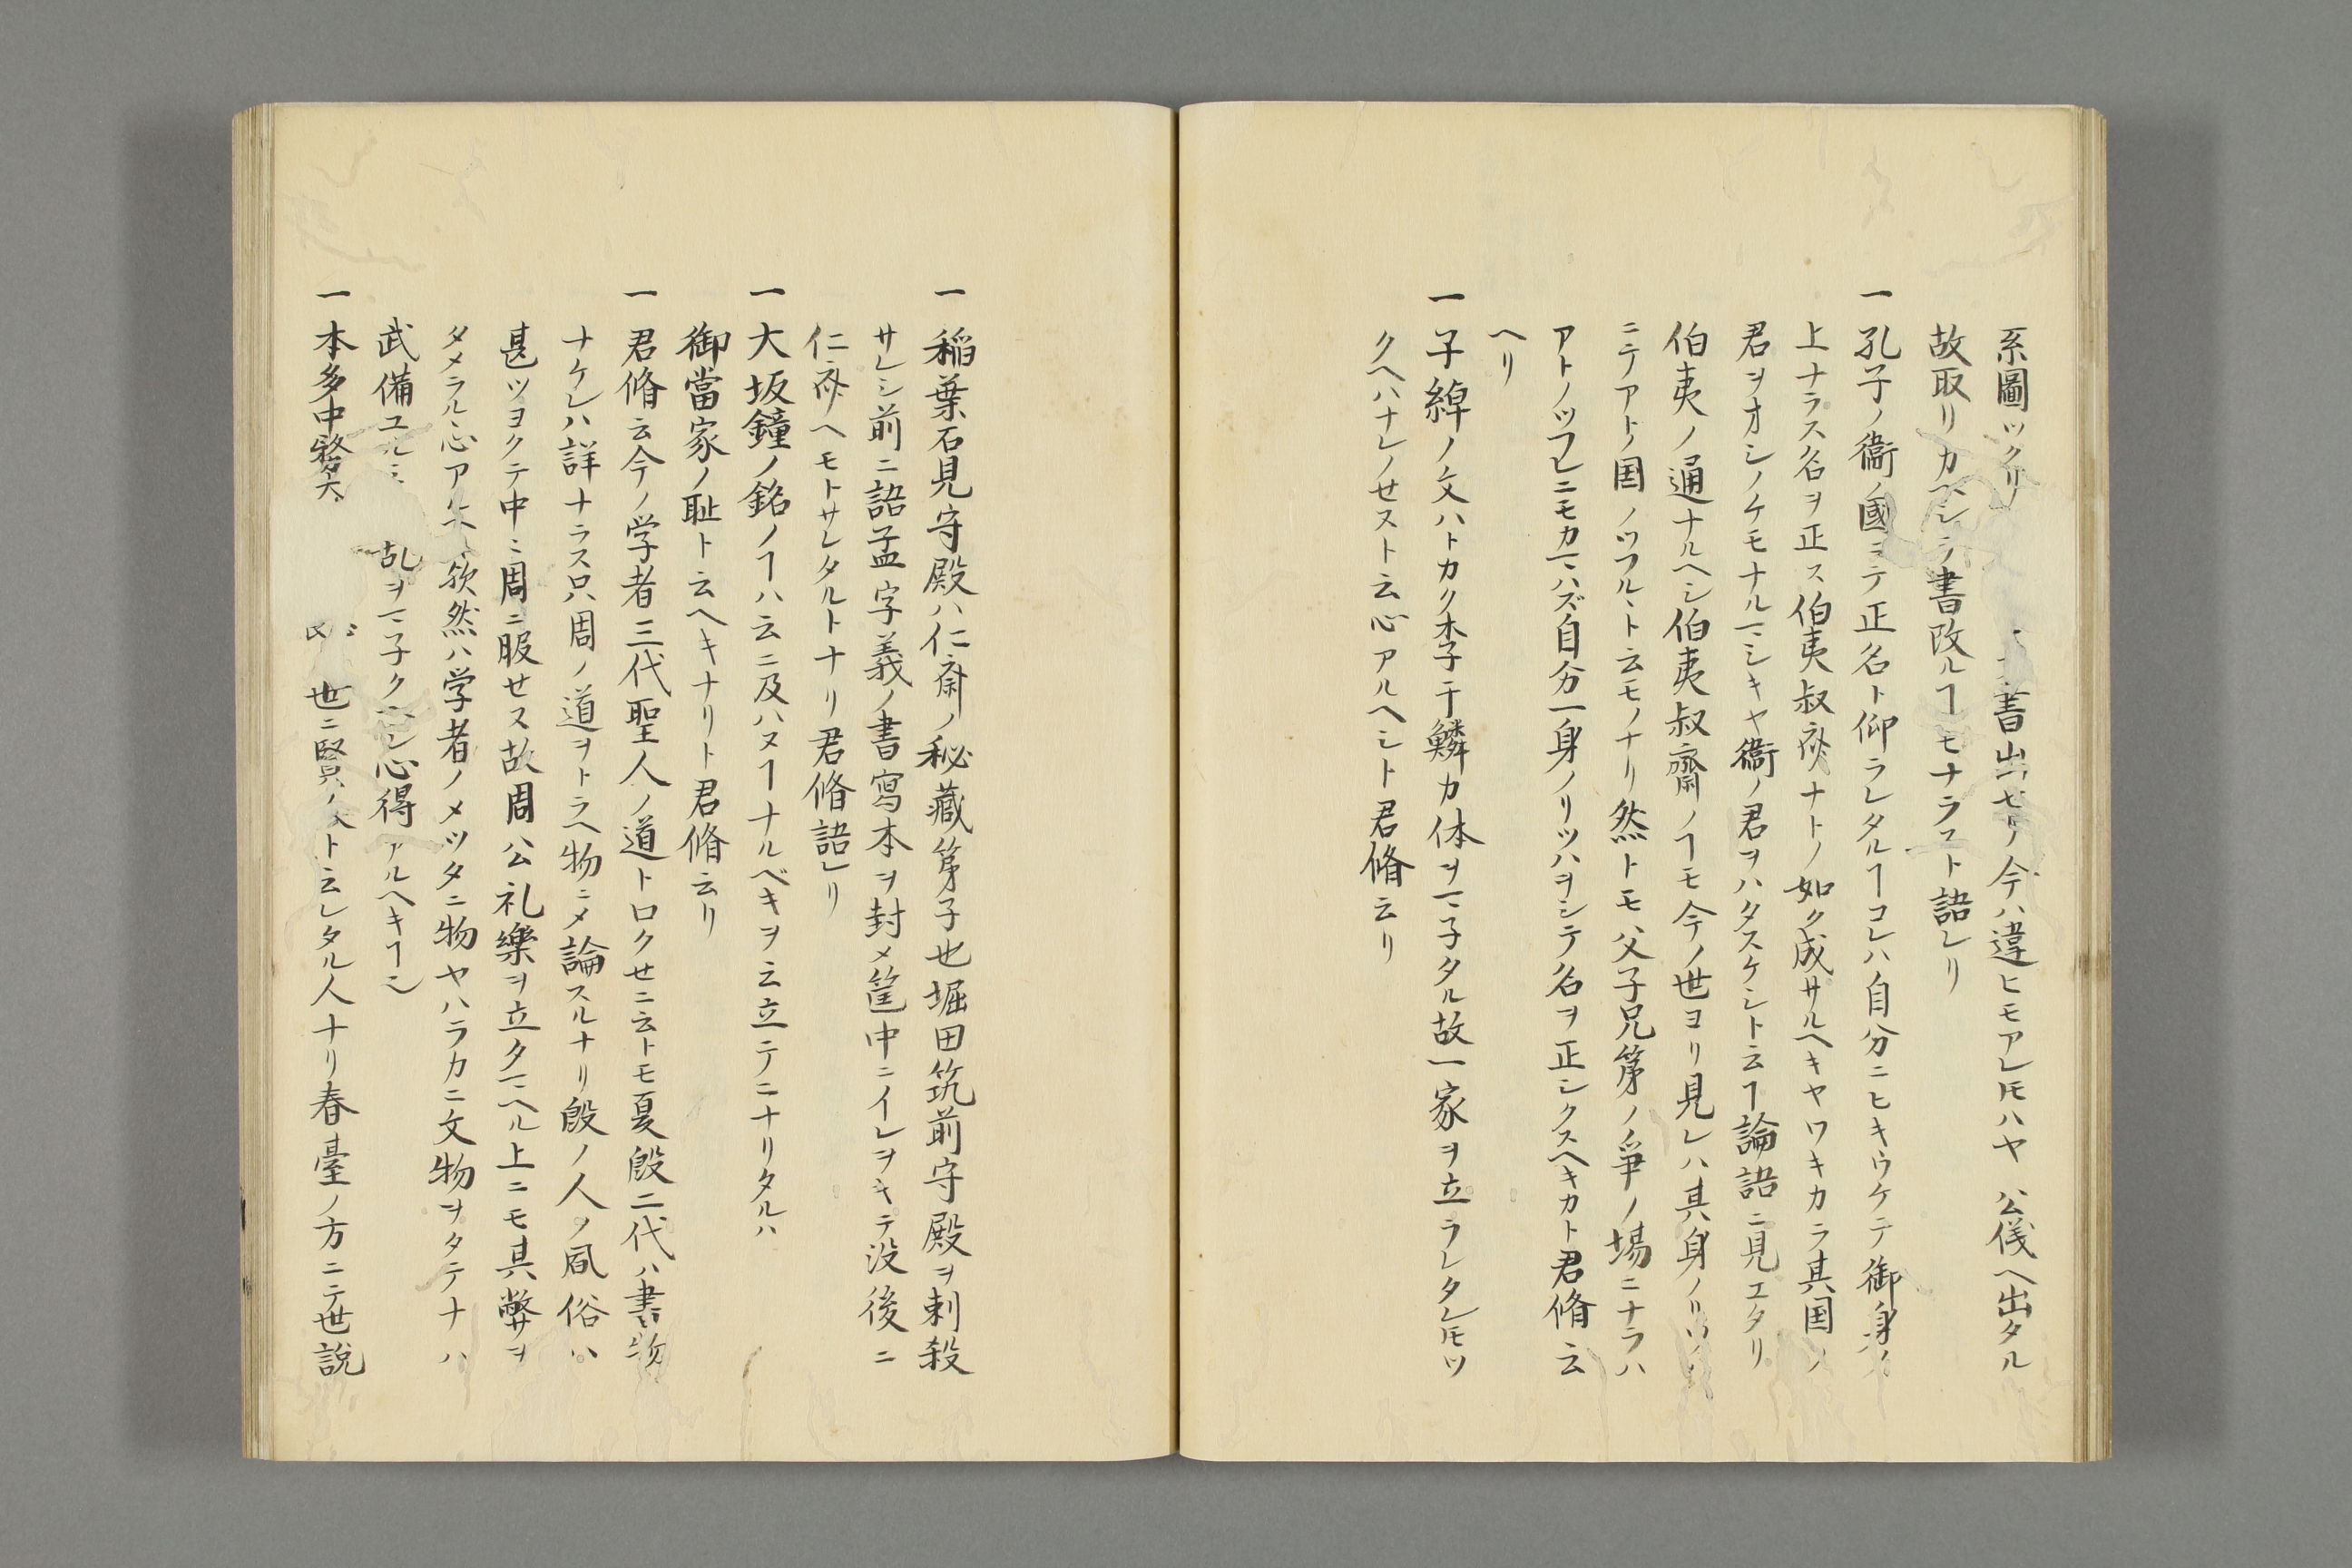 系圖ツクリ 書出セリ今ハ違ヒモアレ𪜈ハヤ 公儀ヘ出タル
故取リカヘシテ書改ルヿモナラスト語レリ
一孔子ノ衞ノ國ニテ正名ト仰ラレタルヿコレハ自分ニヒキウケテ御身ノ
上ナラス名ヲ正ス伯夷叔斉ナトノ如ク成サルヘキヤワキカラ其国ノ
君ヲオシノケモナルマシキヤ衞ノ君ヲハタスケシト云ヿ論語ニ見エタリ
伯夷ノ通ナルヘシ伯夷叔齋ノヿモ今ノ世ヨリ見レハ其身ノリツハ
ニテアトノ国ノツフルヽト云モノナリ然トモ父子兄第ノ爭ノ場ニナラハ
アトノツフレニモカマハズ自分一身ノリツハヲシテ名ヲ正シクスヘキカト君脩云
ヘリ
一子綽ノ文ハトカク李于鱗カ体ヲマ子タル故一家ヲ立ラレタレ𪜈ツ
クヘハナレノセスト云心アルヘシト君脩云リ
一稲葉石見守殿ハ仁齋ノ秘藏第子也堀田筑前守殿ヲ刺殺
サレシ前ニ語孟字義ノ書寫本ヲ封メ筐中ニイレヲキテ没後ニ
仁斉ヘモトサレタルトナリ君脩語レリ
一大坂鐘ノ銘ノヿハ云ニ及ハヌヿナルベキヲ云立テニナリタルハ
御當家ノ耻ト云ヘキナリト君脩云リ
一君脩云今ノ学者三代聖人ノ道トロクセニ云トモ夏殷二代ハ書物
ナケレハ詳ナラス只周ノ道ヲトラヘ物ニメ論スルナリ殷ノ人ノ風俗ハ
甚ツヨクテ中〻周ニ服セス故周公礼樂ヲ立タマヘル上ニモ其弊サヲ
タメラル心アル 欤然ハ学者ノメツタニ物ヤハラカニ文物ヲタテナハ
武備ユル 乱ヲマ子クヘシ心得アルヘキヿ也
一本多中務大 世ニ賢人ト云レタル人ナリ春臺ノ方ニテ世説